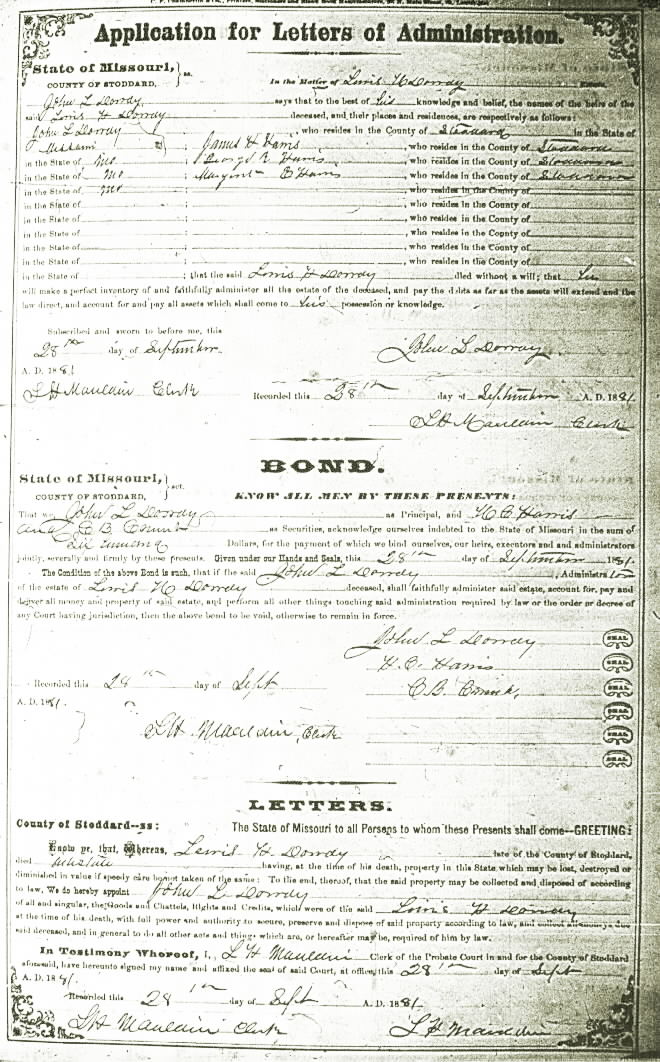 Application for Letters of Administration.
State of Missouri, } ss.
COUNTY OF STODDARD,
In the Matter of Lewis H Dowdy
John L Dowdy says that to the best of his knowledge and belief, the names of the heirs of the
said Lewis H Dowdy deceased, and their places and residences, are respectively as follows:
John L Dowdy , who resides in the County of Stoddard in the State of
Missouri ; James H Harris , who resides in the County of Stoddard
in the State of Mo ; George R Harris , who resides in the County of Stoddard
in the State of Mo ; Margaret E Harris , who resides in the County of Stoddard
in the State of Mo ; , who resides in the County of
in the State of ; , who resides in the County of
in the State of ; , who resides in the County of
in the State of ; , who resides in the County of
in the State of ; , who resides in the County of
in the State of ; , who resides in the County of
in the State of ; that the said Lewis H Dowdy died without a will; that he
will make a perfect inventory of and faithfully administer all the estate of the deceased, and pay the debts as far as the assets will extend and the
law direct, and account for and pay all assets which shall come to his possession or knowledge.
Subscribed and sworn to before me, this
28th day of September
John L Dowdy
A. D. 1881
L H Mauldin Clerk
Recorded this 28th day of September A. D. 1881.
L H Mauldin Clerk
BOND.
State of Missouri, } sct.
COUNTY OF STODDARD,
KNOW ALL MEN BY THESE PRESENTS:
That we, John L Dowdy as Principal, and H. C. Harris
and C B as Securities, acknowledge ourselves indebted to the State of Missouri in the sum of
Six Hundred Dollars, for the payment of which we bind ourselves, our heirs, executors and and administrators
jointly, severally and firmly by these presents. Given under our Hands and Seals, this 28th day of September 1881.
The Condition of the above Bond is such, that if the said John L Dowdy , Administrator
of the estate of Lewis H Dowdy deceased, shall faithfully administer said estate, account for, pay and
deliver all money and property of said estate, and perform all other things touching said administration required by law or the order or decree of
any Court having jurisdiction, then the above bond to be void, otherwise to remain in force.
John L Dowdy SEAL
H. C. Harris SEAL
Recorded this 28th day of Sept
C. B. SEAL
A. D. 1881.
SEAL
L H Mauldin, Clerk SEAL
SEAL
LETTERS.
County of Stoddard--ss: The State of Missouri to all Persons to whom these Presents shall come--GREETING:
Know ye, that, Whereas, Lewis H Dowdy late of the County of Stoddard,
died intestate having, at the time of his death, property in this State, which may be lost, destroyed or
diminished in value if speedy care be not taken of the same: To the end, thereof, that the said property may be collected and disposed of according
to law, We do hereby appoint John L Dowdy
of all and singular, the Goods and Chattels, Rights and Credits, which were of the said Lewis H Dowdy
at the time of his death, with full power and authority to secure, preserve and dispose of said property according to law, and collect all moneys due
said deceased, and in general to do all other acts and things which are, or hereafter may be, required of him by law.
In Testimony Whereof, I, L H Mauldin Clerk of the Probate Court in and for the County of Stoddard
aforesaid, have hereunto signed my name and affixed the seal of said Court, at office, this 28th day of Sept
A. D. 1881.
Recorded this 28th day of Sept A. D. 1881.
L H Mauldin Clerk
L H Mauldin